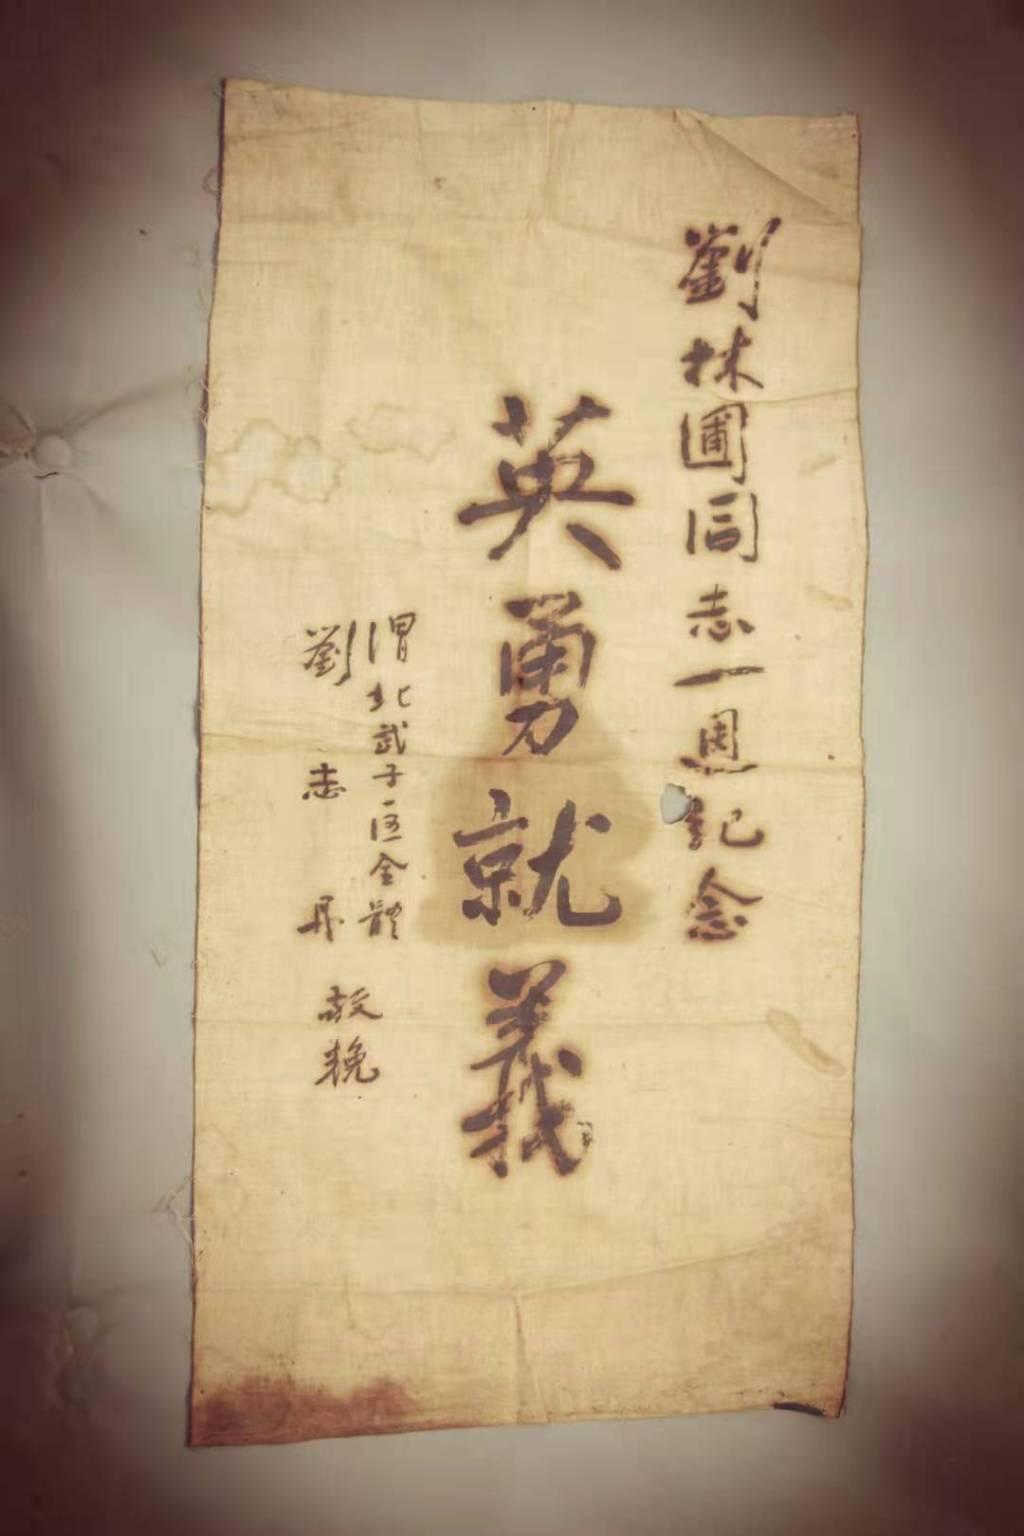 劉林圃同志一週紀念
英勇就義
渭北武字區全體
劉志丹
敬輓